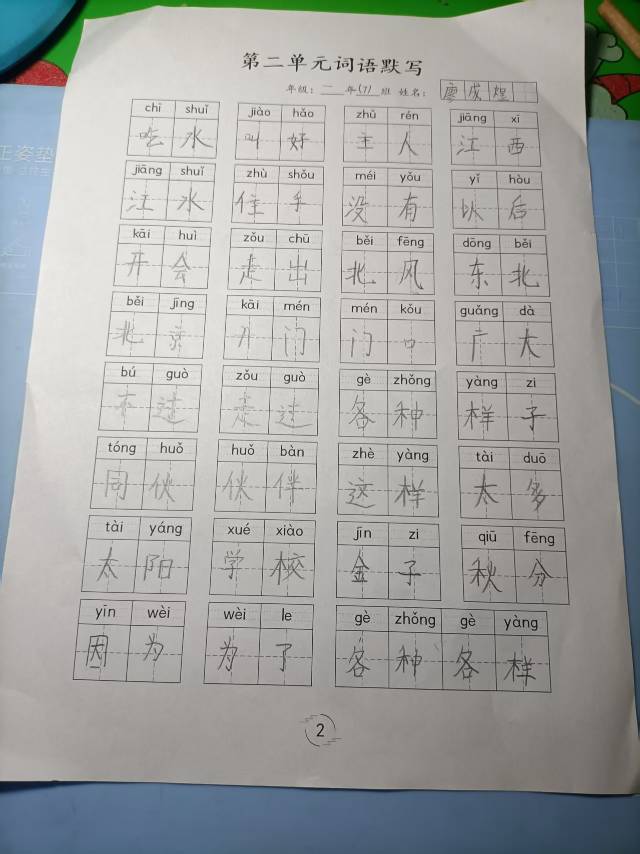 正姿垫
第二单元词语默写
年级：一 年(7)班 姓名：廖成
chī shuǐ jiào hǎo zhǔ rén jiāng xi
吃水 叫好 主人 江西
jiāng shuǐ zhù shǒu méi yǒu yǐ hòu
江水 住手 没有 以后
kāi huì zǒu chū běi fēng dōng běi
开会 走出 北风 东北
běi jīng kāi mén mén kǒu guǎng dà
北京 开门 门口 广大
bú guò zǒu guò gè zhǒng yàng zi
过 走过 各种 样子
tóng huǒ huǒ bàn zhè yàng tài duō
同伙 伙伴 这样 太多
tài yáng xué xiào jīn zi qiū fēng
太阳 学校 金子 秋分
yīn wèi wèi le gè zhǒng gè yàng
因为 为了 各种各样
2